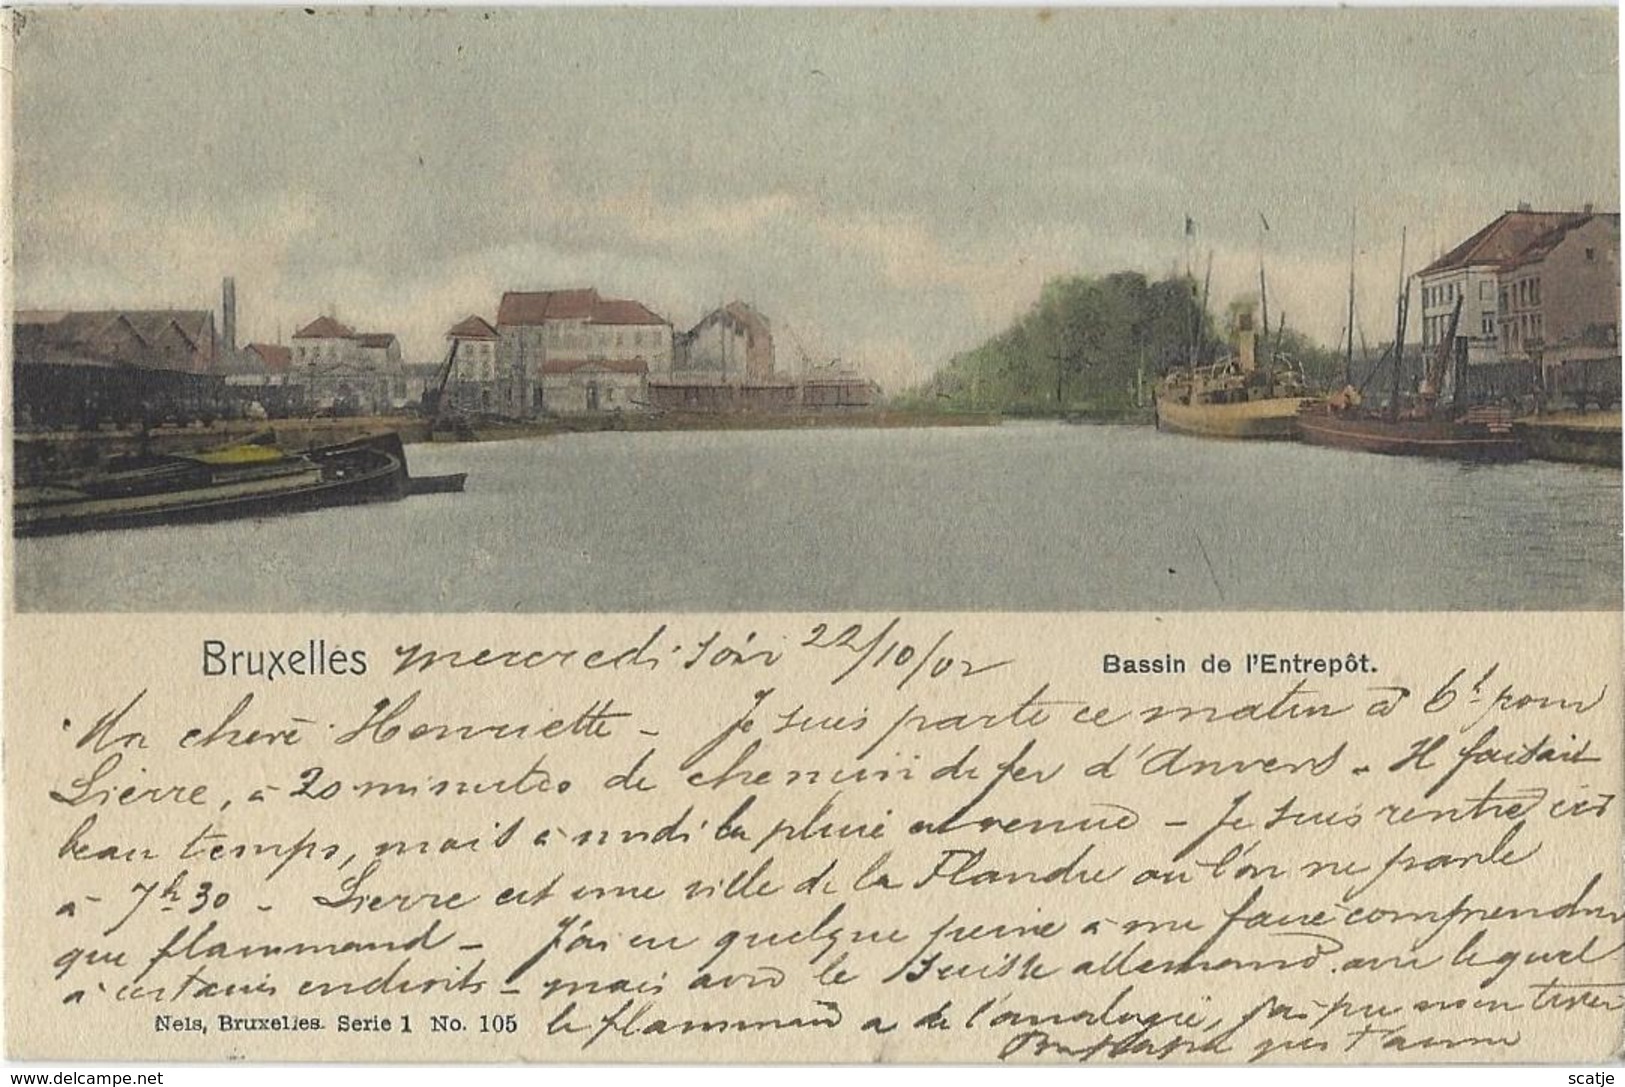 Bruxelles mercredi soir 22/10/02 Bassin de l'Entrepôt.
Ma chère Henriette - Je suis parti ce matin à 6h pour
Lierre, à 20 minutes de chemin de fer d'Anvers - Il faisait
beau temps, mais à midi la pluie est venue - Je suis rentré ici
à 7h 30 - Lierre est une ville de la Flandre où l'on ne parle
que flammand - J'ai eu quelque peine à me faire comprendre
à certains endroits - mais avec le Suisse allemand avec lequel
le flammand a de l'analogie, j'ai pu m'en tirer
qui t'aime
Nels, Bruxelles. Serie 1 No. 105
© delcampe.net
scatje